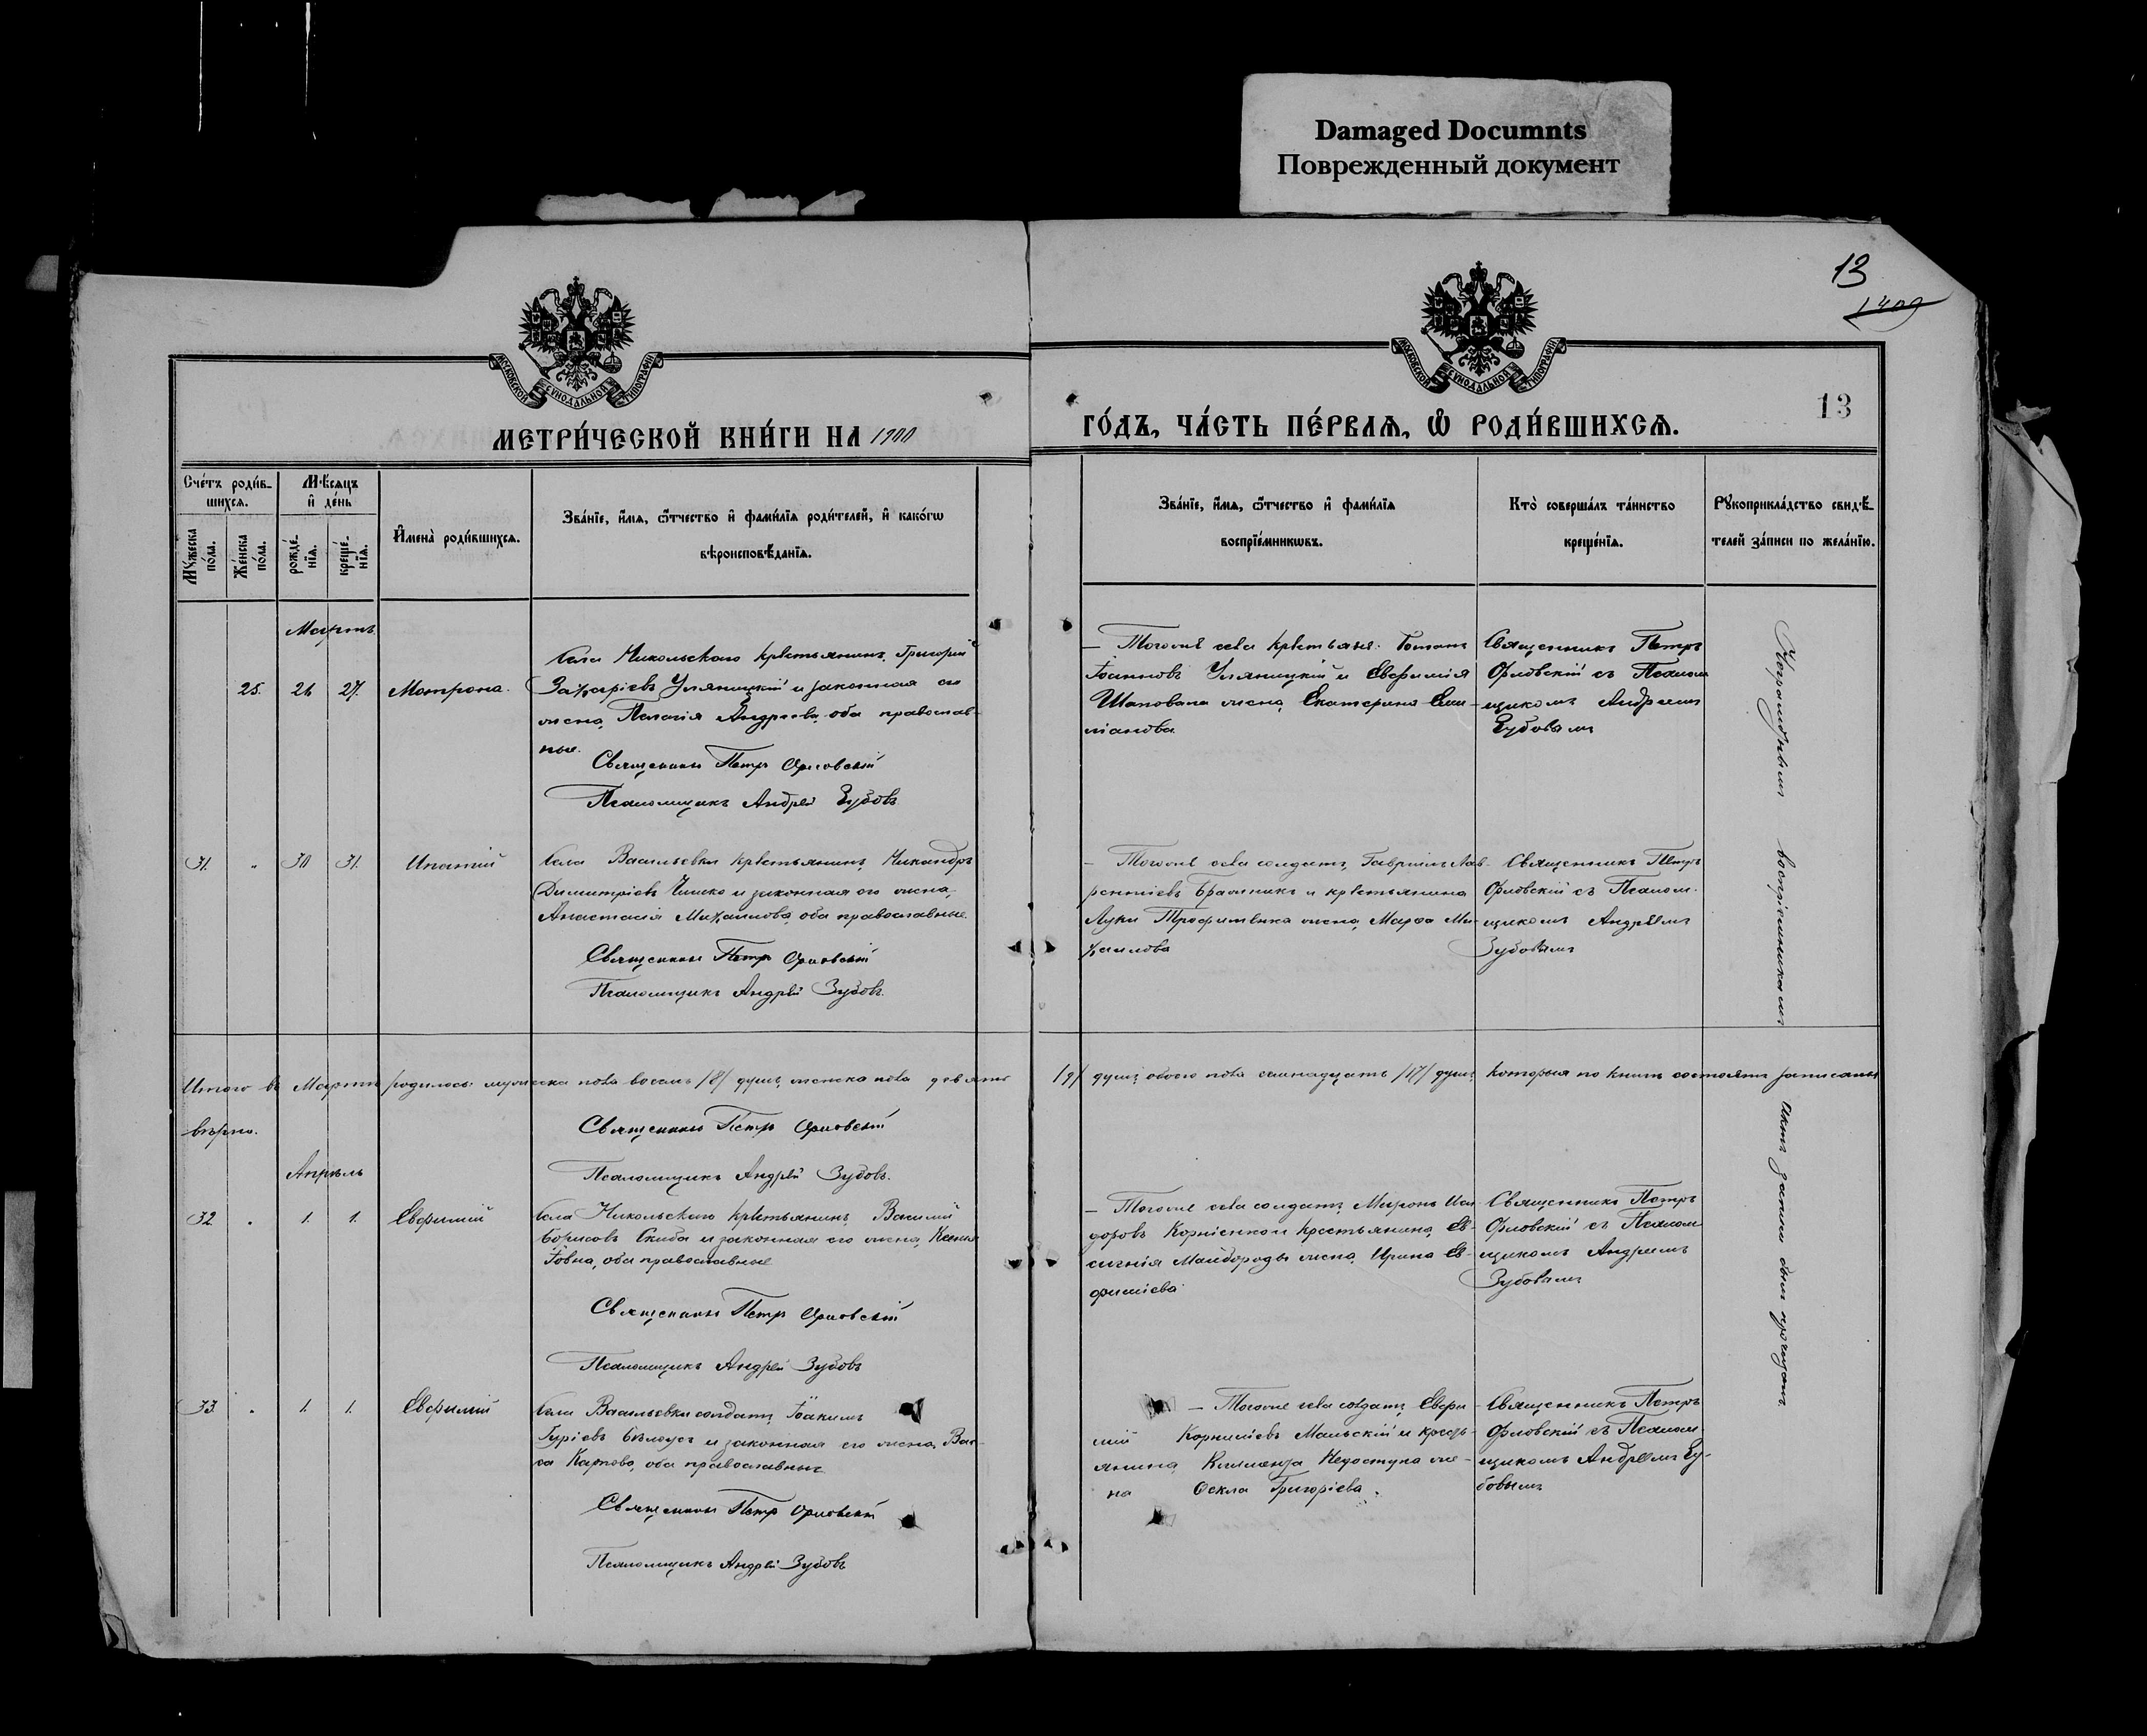 Damaged Documnts
Поврежденный документ
13
1409
МОСКОВСКОЙ СѴНОДАЛЬНОЙ ТИПОГРАФІИ
МОСКОВСКОЙ СѴНОДАЛЬНОЙ ТИПОГРАФІИ
13
МЕТРИ́ЧЕСКОЙ КНИ́ГИ НА 1900
ГО́ДЪ, ЧА́СТЬ ПЕ́РВАѦ, Ѡ҆ РОДИ́ВШИХСѦ.
Сче́тъ роди́в-
шихсѧ.
Мꙋ́жеска по́ла.
Же́нска по́ла.
Мѣ́сѧцъ
и҆ де́нь
рожде́-
нїѧ.
креще́-
нїѧ.
И҆мена̀ роди́вшихсѧ.
Зва́нїе, и҆́мѧ, ѻ҆́тчество и҆ фами́лїѧ роди́телей, и҆ како́гѡ
вѣроисповѣ́данїѧ.
Зва́нїе, и҆́мѧ, ѻ҆́тчество и҆ фами́лїѧ
воспрїе́мникѡвъ.
Кто̀ соверша́лъ та́инство
креще́нїѧ.
Рꙋкоприкла́дство свидѣ́-
телей за́писи по жела́нїю.
Мартъ
25. 26 27. Матрона.
Села Никольскаго крестьянинъ, Григорій
Захаріевъ Уляницкій и законная его
жена, Пелагія Андреева, оба православ-
ные.
Священникъ Петръ Орловскій
Псаломщикъ Андрей Зубовъ
— Тогоже села крестьяне: Потапъ
Іоанновъ Уляницкій и Евфимія
Шаповала жена, Екатерина Еми-
ліанова.
Священникъ Петръ
Орловскій съ Псалом
щикомъ Андреемъ
Зубовымъ
31. " 30 31. Ипатій
Села Васильевки крестьянинъ, Никандръ
Димитріевъ Чишко и законная его жена,
Анастасія Михаилова, оба православные.
Священникъ Петръ Орловскій
Псаломщикъ Андрей Зубовъ.
— Тогоже села солдатъ, Гавріилъ Лав-
рентіевъ Бражникъ и крестьянина
Луки Трофименка жена, Марѳа Ми-
хаилова
Священникъ Петръ
Орловскій съ Псалом-
щикомъ Андреемъ
Зубовымъ
Итого въ Мартѣ родилось: мужеска пола восемь /8/ душъ, женска пола девять /9/ душъ, обоего пола семнадцать /17/ душъ, которыя по книгѣ состоятъ записаны
вѣрно.
Священникъ Петръ Орловскій
Псаломщикъ Андрей Зубовъ.
Апрѣль
32 " 1. 1. Евфимій
Села Никольскаго крестьянинъ, Василій
Борисовъ Скиба и законная его жена, Ксенія
Іовна, оба православные
Священникъ Петръ Орловскій
Псаломщикъ Андрей Зубовъ
— Тогоже села солдатъ, Миронъ Иси-
доровъ Корніенко и крестьянина, Ев-
сигнія Майбороды жена, Ирина Ев-
фиміева
Священникъ Петръ
Орловскій съ Псалом
щикомъ Андреемъ
Зубовымъ
33. " 1. 1. Евфимій
Села Васильевки солдатъ, Іоакимъ
Гуріевъ Бѣлоусъ и законная его жена, Вас-
са Карпова, оба православные
Священникъ Петръ Орловскій
Псаломщикъ Андрей Зубовъ
— Тогоже села солдатъ, Евфи-
мій Корниліевъ Мальскій и кресть-
янина, Климента Недоступа же-
на Ѳекла Григоріева.
Священникъ Петръ
Орловскій съ Псалом
щикомъ Андреемъ Зу-
бовымъ
Неграмотнымъ воспріемникамъ
Актъ записи былъ прочитанъ